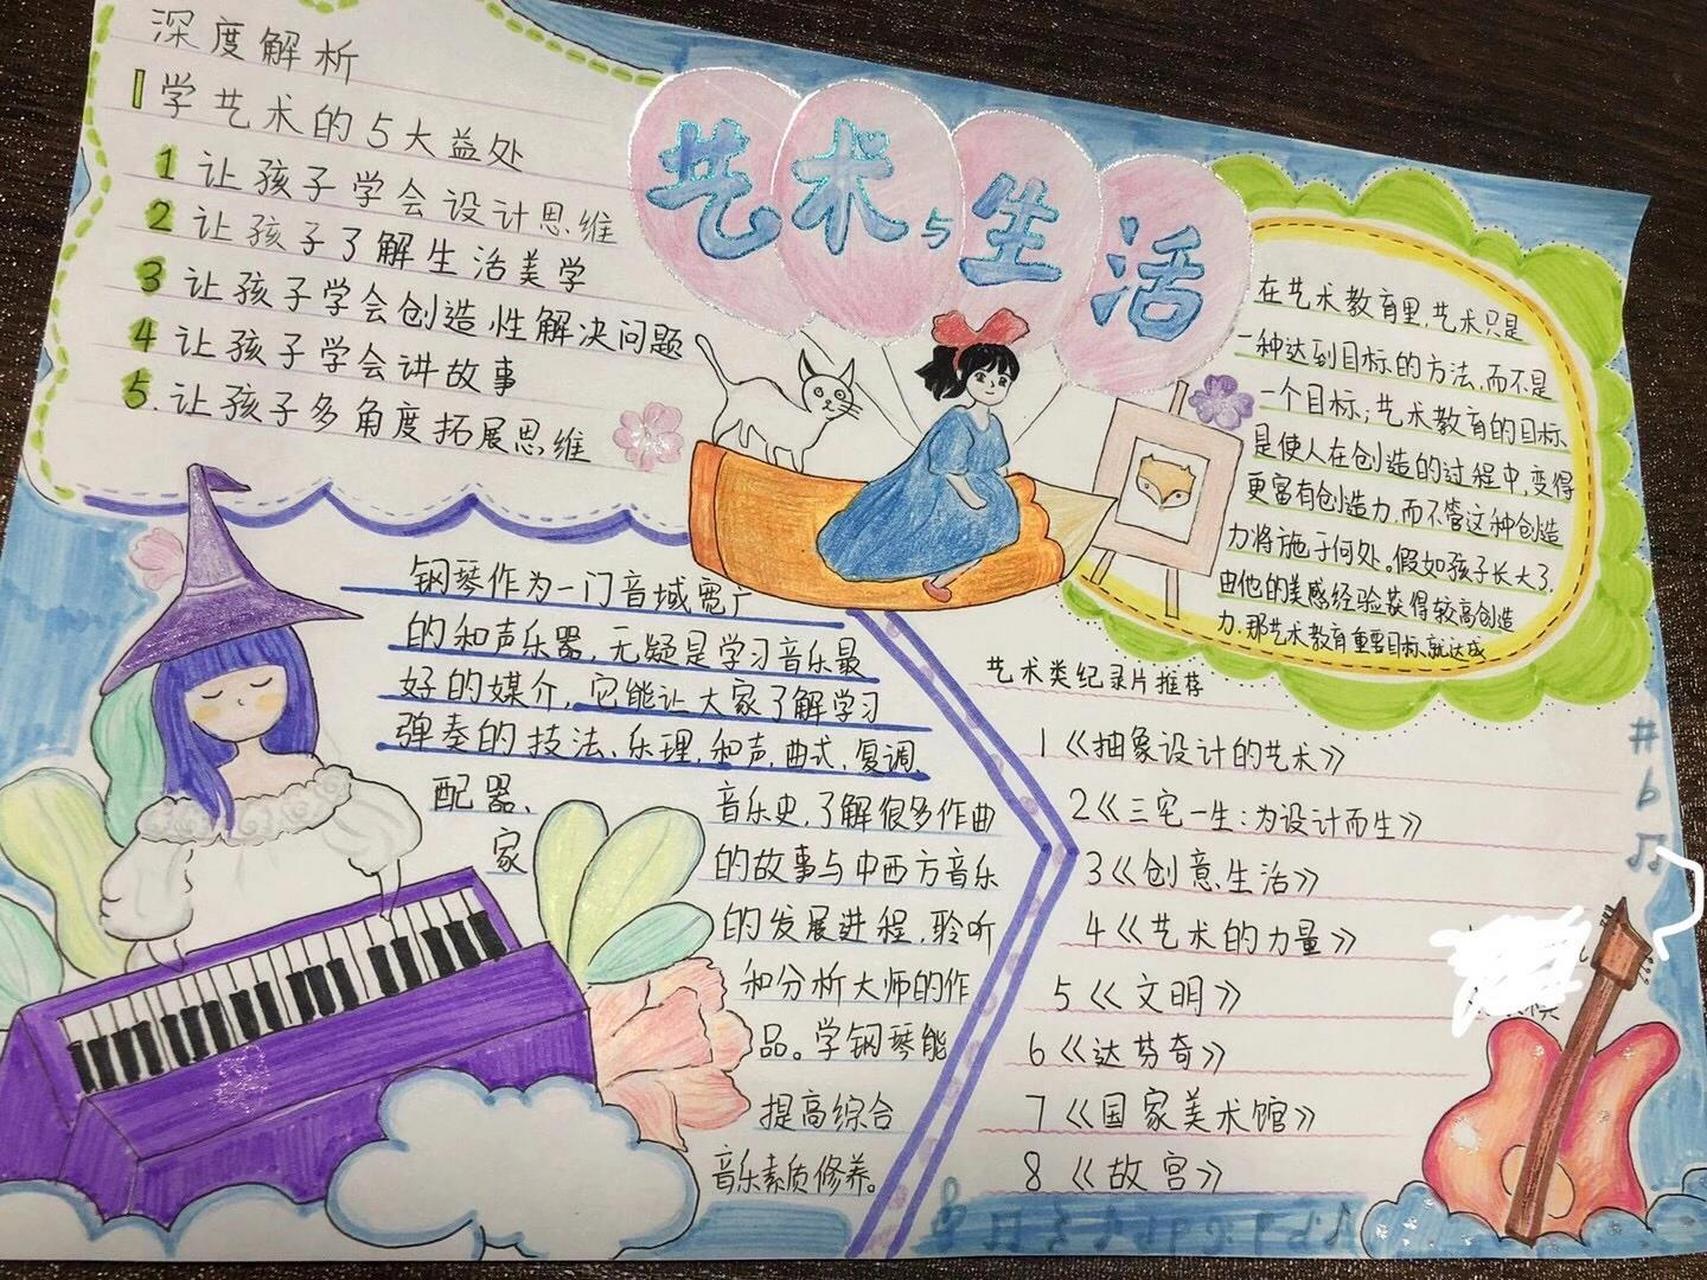 深度解析
学艺术的5大益处
1 让孩子学会设计思维
2 让孩子了解生活美学
3 让孩子学会创造性解决问题
4 让孩子学会讲故事
5.让孩子多角度拓展思维
艺术与生活
在艺术教育里,艺术只是
一种达到目标的方法,而不是
一个目标;艺术教育的目标
是使人在创造的过程中,变得
更富有创造力,而不管这种创造
力将施于何处。假如孩子长大了,
由他的美感经验获得较高创造
力,那艺术教育重要目标就达成
钢琴作为一门音域宽广
的和声乐器,无疑是学习音乐最
好的媒介,它能让大家了解学习
弹奏的技法、乐理,和声,曲式,复调,
配器、音乐史,了解很多作曲
家的故事与中西方音乐
的发展进程,聆听
和分析大师的作
品。学钢琴能
提高综合
音乐素质修养。
艺术类纪录片推荐
1《抽象设计的艺术》
2《三宅一生:为设计而生》
3《创意生活》
4《艺术的力量》
5《文明》
6《达芬奇》
7《国家美术馆》
8《故宫》